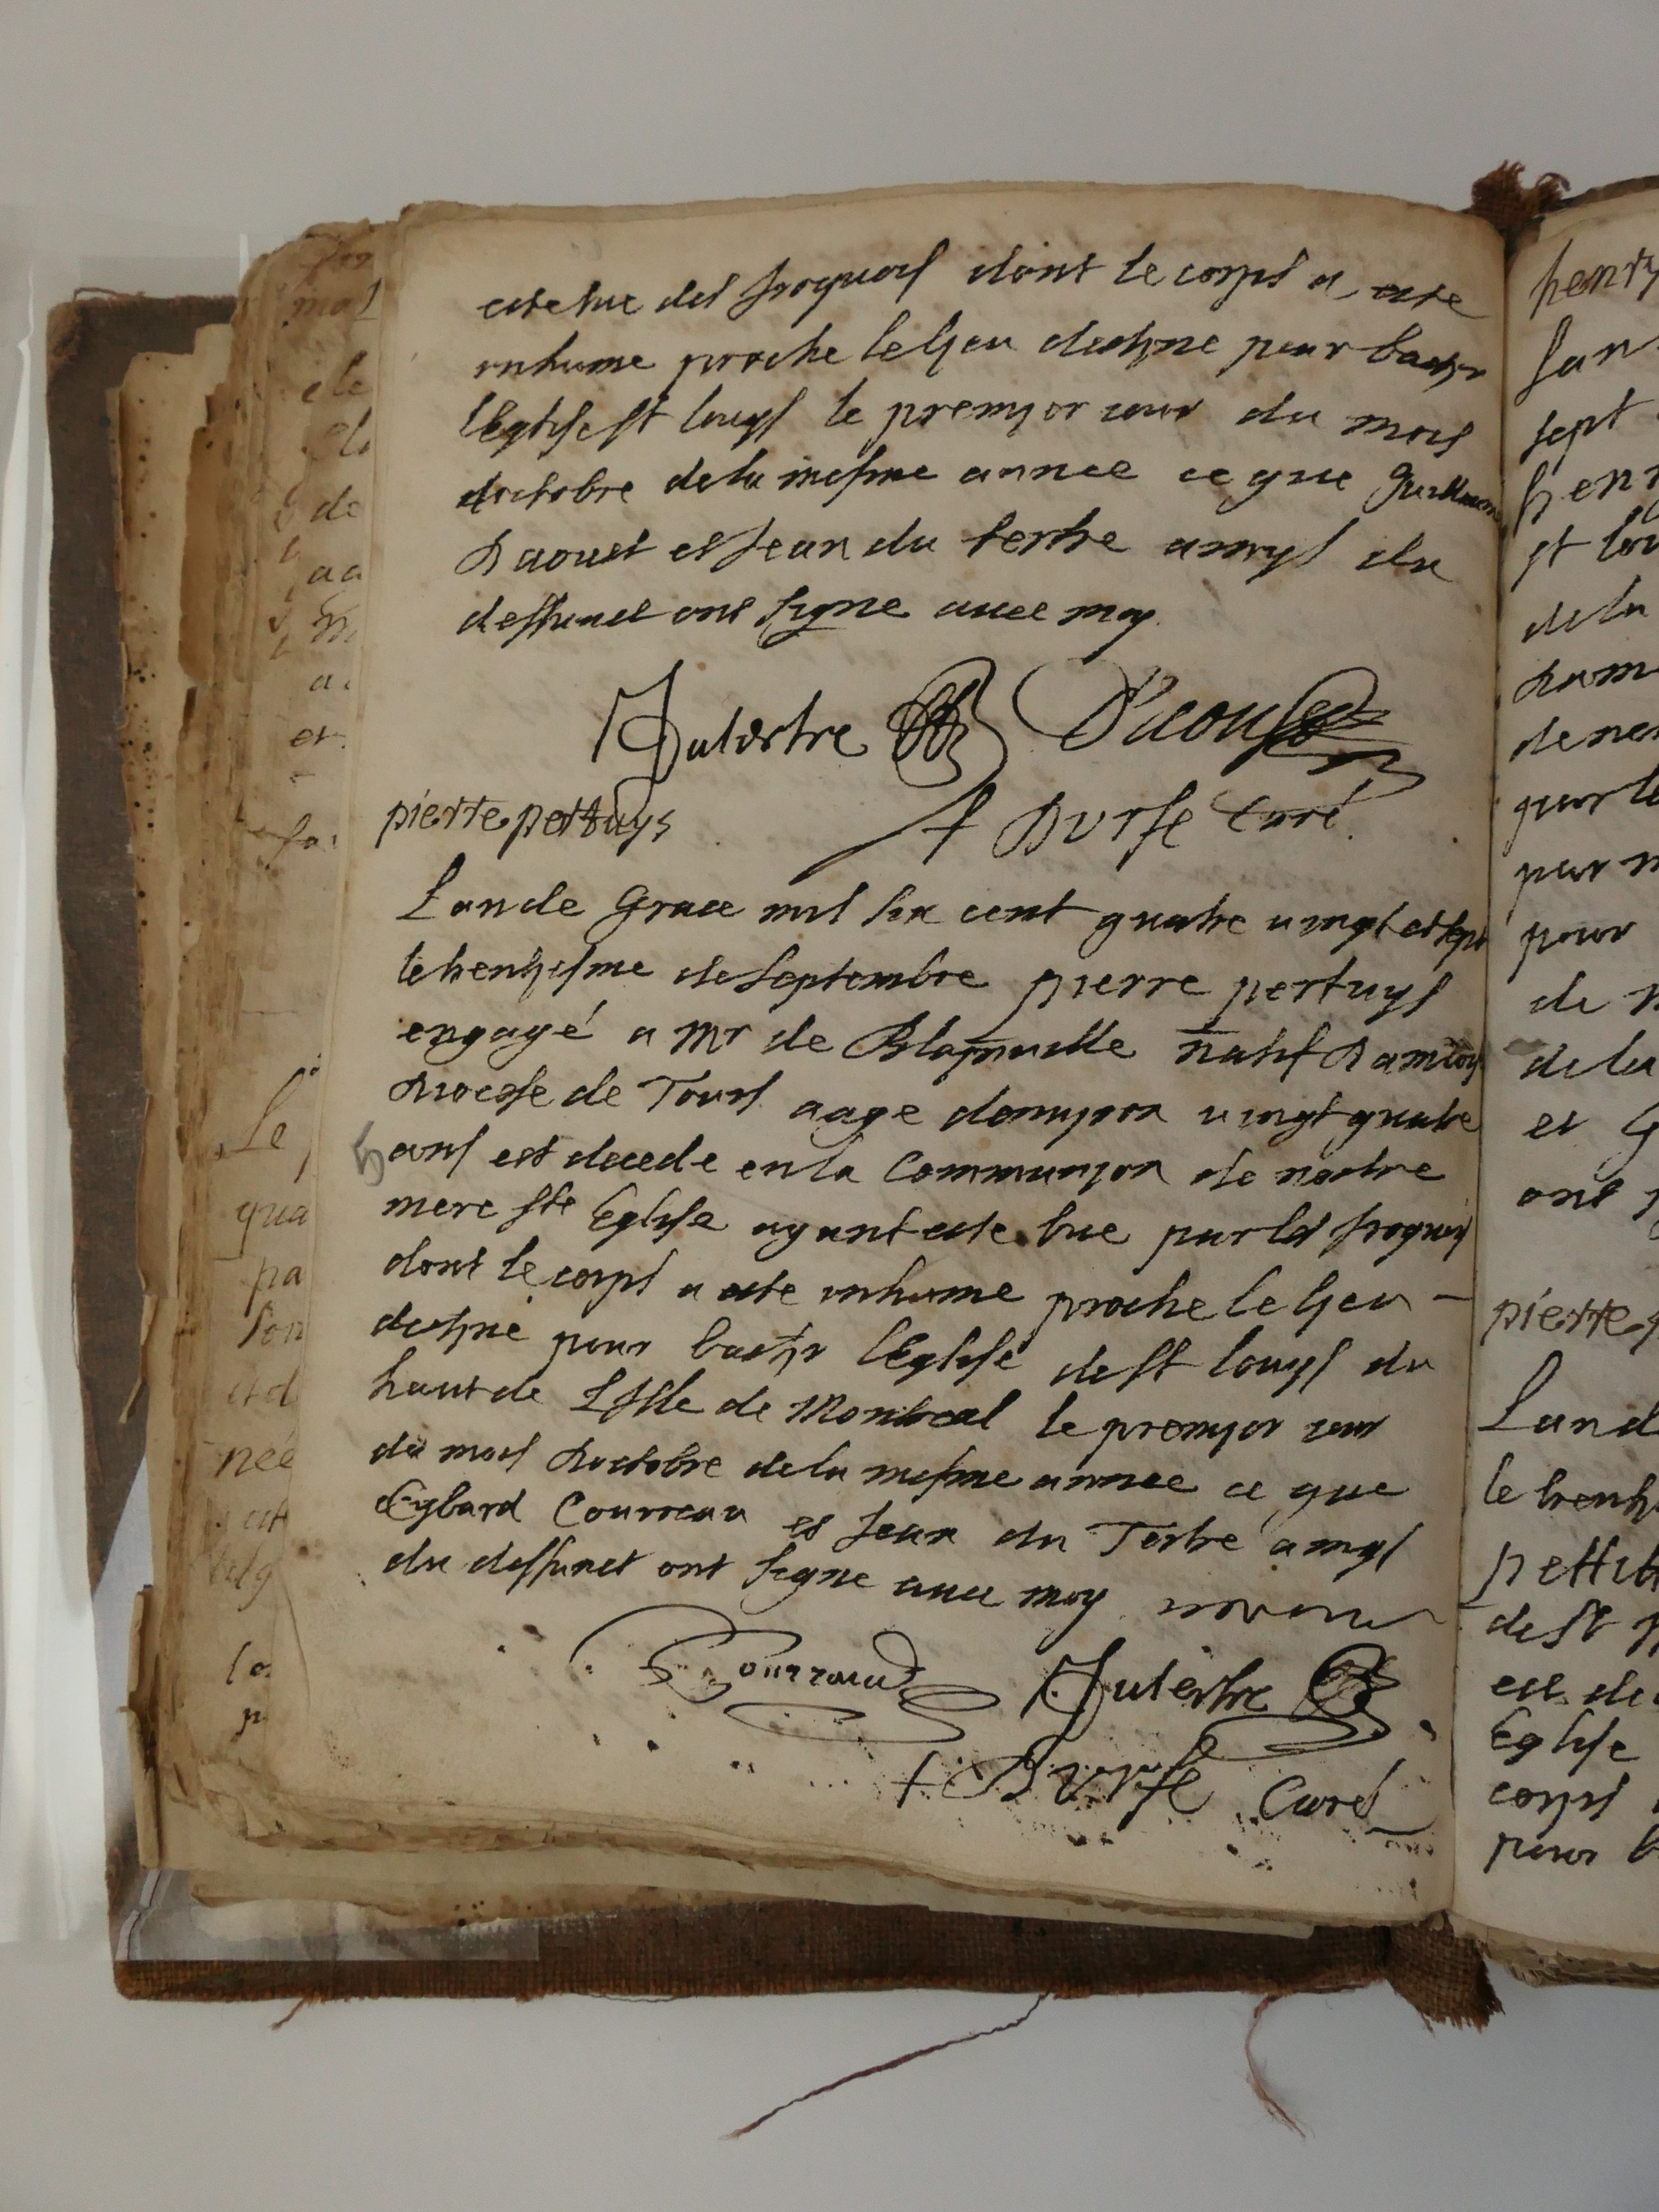 este tue des Iroquois dont le corps a este
inhume proche le lyeu destyne pour bastyr
l'Eglise st louys le premyer iour du mois
doctobre de la mesme annee ce que Guillaume
Daoust et Jean du tertre amys du
deffunct ont signe avec moy
JDutertre Daoust
pierre pertuys
+ Durfé Curé
Lan de Grace mil six cent quatre vingt et sept
le trentyesme de Septembre pierre pertuys
engagé a Mr de Blaynuille natif Damboy
Diocese de Tours aage denvyron vingt quatre
ans est decede en la Communyon de nostre
mere ste Eglise ayant este tue par les Iroquois
dont le corps a este inhume proche le lyeu
destyné pour bastyr lEglise de st louys du
haut de Lisle de Montreal le premyer iour
du mois Doctobre de la mesme annee ce que
Cybard Courreau et Jean du Tertre amys
du deffunct ont signe avec moy
Courraud JDutertre
+ Durfé Curé
henry
sept
st lou
de la
par
pour
de la
et G
ont
pierre
Land
le trenty
pettit
de st
est de
Eglise
corps
pour b
ele
de
et
Le
qua
pa
son
et d
née